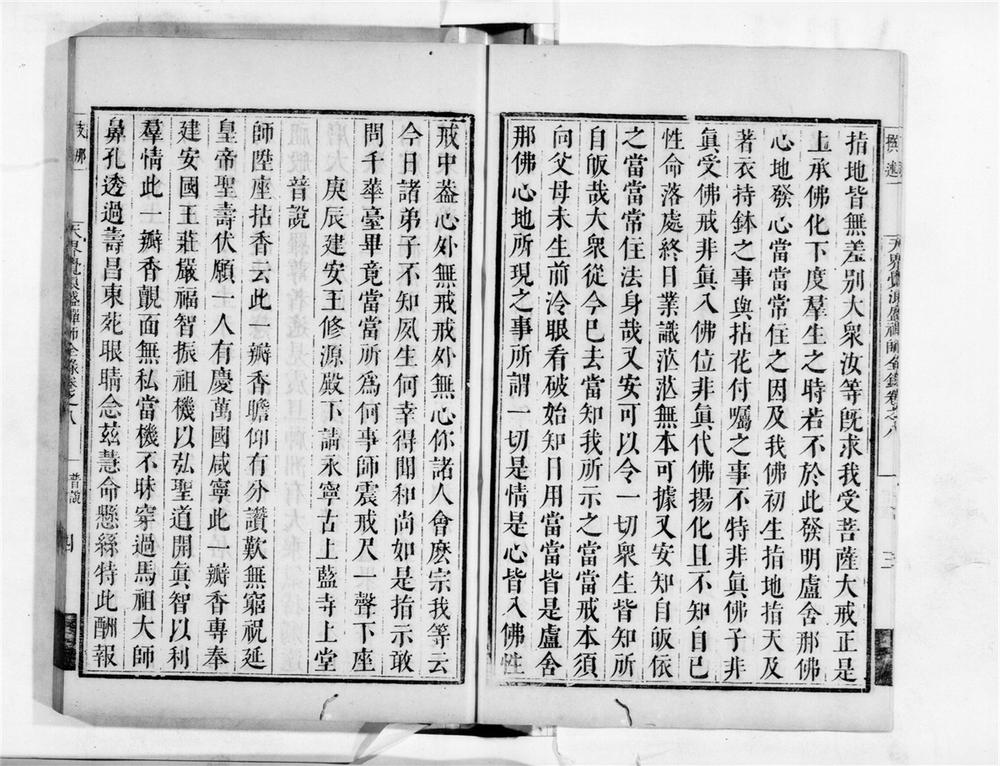 指地皆無差別大衆汝等旣求我受菩薩大戒正是
上承佛化下度羣生之時若不於此發明盧舍那佛
心地發心當當常住之因及我佛初生指地指天及
著衣持鉢之事與拈花付囑之事不特非眞佛子非
眞受佛戒非眞入佛位非眞代佛揚化且不知自已
性命落處終日業識茫茫無本可據又安知自皈依
之當當常住法身哉又安可以令一切衆生皆知所
自皈哉大衆從今已去當知我所示之當當戒本須
向父母未生前冷眼看破始知日用當當皆是盧舍
那佛心地所現之事所謂一切是情是心皆入佛性
戒中葢心外無戒戒外無心你諸人會麽宗我等云
今日諸弟子不知夙生何幸得聞和尚如是指示敢
問千華臺畢竟當當所爲何事師震戒尺一聲下座
庚辰建安王修源殿下請永寧古上藍寺上堂
普說
師陞座拈香云此一瓣香瞻仰有分讚歎無窮祝延
皇帝聖壽伏願一人有慶萬國咸寧此一瓣香專奉
建安國王莊嚴福智振祖機以弘聖道開眞智以利
羣情此一瓣香覿面無私當機不昧穿過馬祖大師
鼻孔透過壽昌東苑眼睛念茲慧命懸絲特此酬報
天界覺浪盛禪師全錄卷之八
普說
四